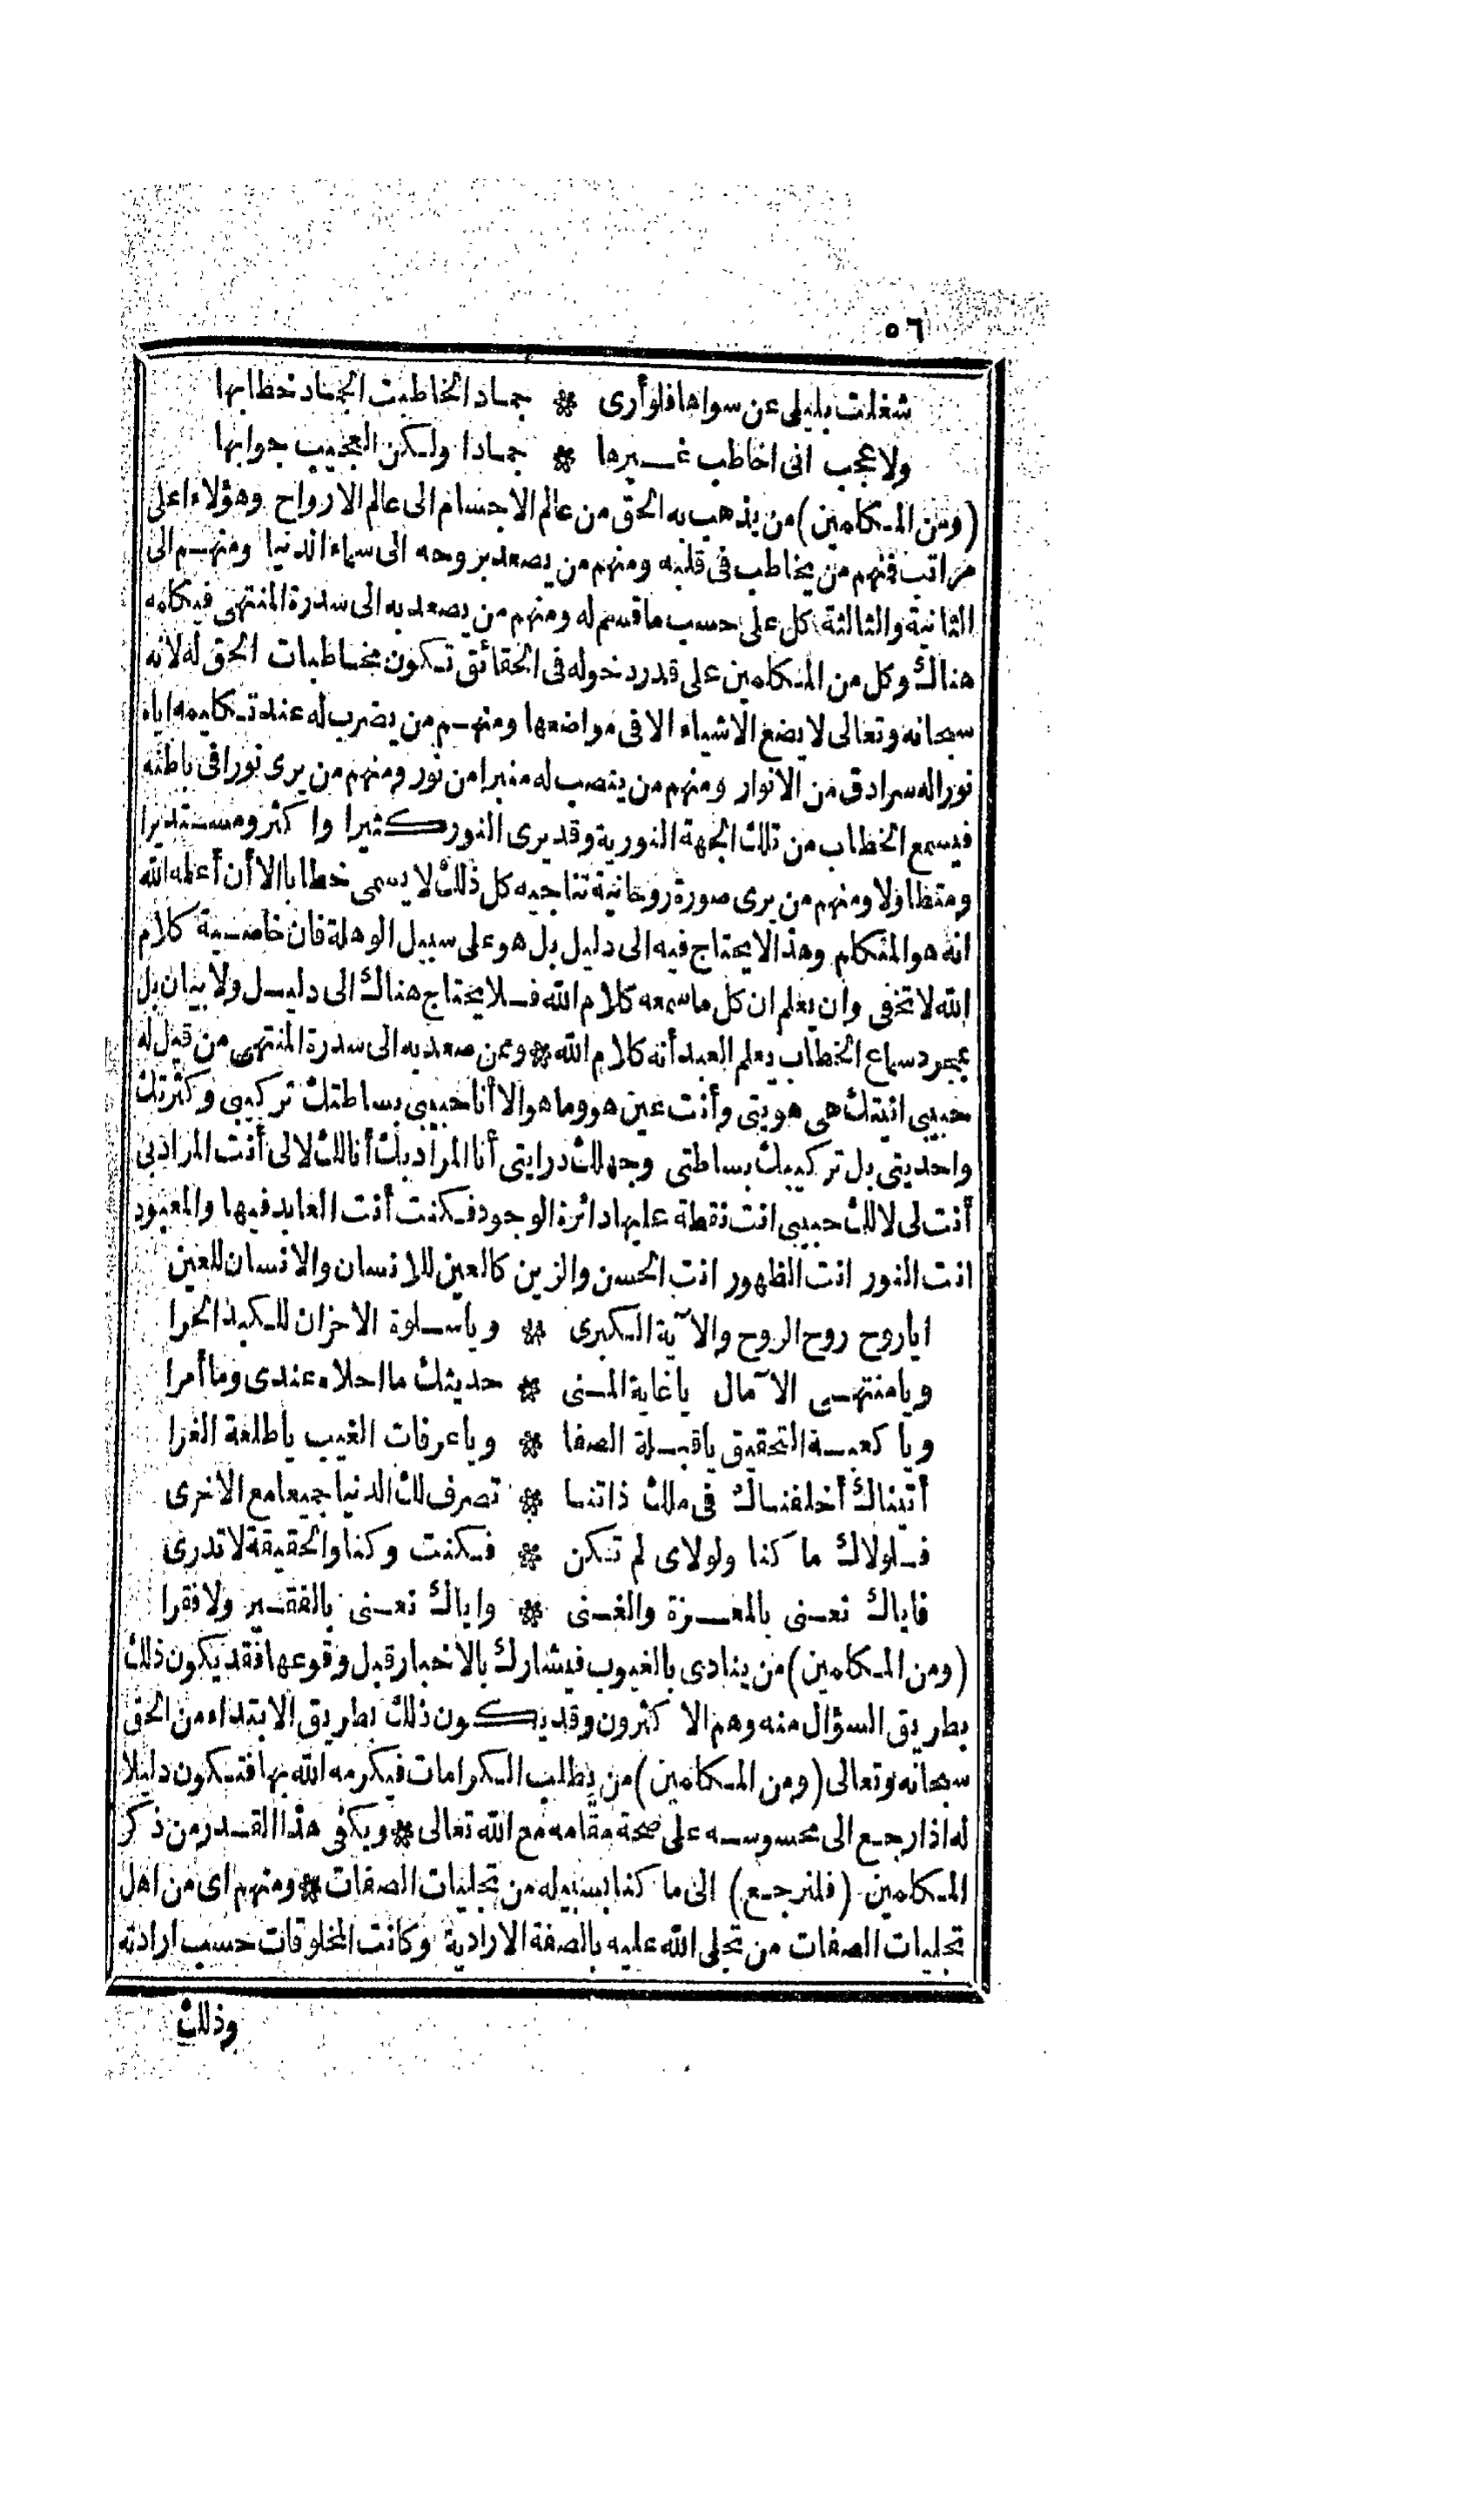 ٥٦
شغلت بليلى عن سواها فلو أرى * جمادا لخاطبت الجماد خطابها
ولا عجب انى اخاطب غيرها * جمادا ولكن العجيب جوابها
(ومن المكلمين) من يذهب به الحق من عالم الاجسام الى عالم الارواح وهؤلاء اعلى
مراتب فمنهم من يخاطب فى قلبه ومنهم من يصعد بروحه الى سماء الدنيا ومنهم الى
الثانية والثالثة كل على حسب ما قسم له ومنهم من يصعد به الى سدرة المنتهى فيكلمه
هناك وكل من المكلمين على قدر دخوله فى الحقائق تكون مخاطبات الحق له لانه
سبحانه وتعالى لا يضع الاشياء الا فى مواضعها ومنهم من يضرب له عند تكليمه اياه
نور له سرادق من الانوار ومنهم من ينصب له منبرا من نور ومنهم من يرى نورا فى باطنه
فيسمع الخطاب من تلك الجهة النورية وقد يرى النور كثيرا واكثر ومستديرا
ومتطاولا ومنهم من يرى صورة روحانية تناجيه كل ذلك لا يسمى خطابا الا أن أعلمه الله
انه هو المتكلم وهذا لا يحتاج فيه الى دليل بل هو على سبيل الوهلة فان خاصية كلام
الله لا تخفى وان يعلم ان كل ما سمعه كلام الله فلا يحتاج هناك الى دليل ولا بيان بل
بمجرد سماع الخطاب يعلم العبد أنه كلام الله * وممن صعد به الى سدرة المنتهى من قيل له
حبيبى انيتك هى هويتى وأنت عين هو وما هو الا أنا حبيبى بساطتك تركيبى وكثرتك
واحديتى بل تركيبك بساطتى وجهلك درايتى أنا المراد بك أنا لك لا لى أنت المراد بى
أنت لى لا لك حبيبى انت نقطة عليها دائرة الوجود فكنت أنت العابد فيها والمعبود
انت النور انت الظهور انت الحسن والزين كالعين للانسان والانسان للعين
ايا روح روح الروح والآية الكبرى * ويا سلوة الاحزان للكبد الحرا
ويا منتهى الآمال يا غاية المنى * حديثك ما احلاه عندى وما أمرا
ويا كعبة التحقيق يا قبلة الصفا * ويا عرفات الغيب يا طلعة الغرا
أتيناك أخلفناك فى ملك ذاتنا * تصرف لك الدنيا جميعا مع الاخرى
فلولاك ما كنا ولولاى لم تكن * فكنت وكنا والحقيقة لا تدرى
فاياك نعنى بالمعزة والغنى * واياك نعنى بالفقير ولا فقرا
(ومن المكلمين) من ينادى بالغيوب فيشارك بالاخبار قبل وقوعها فقد يكون ذلك
بطريق السؤال منه وهم الاكثرون وقد يكون ذلك بطريق الابتداء من الحق
سبحانه وتعالى (ومن المكلمين) من يطلب الكرامات فيكرمه الله بها فتكون دليلا
له اذا رجع الى محسوسه على صحة مقامه مع الله تعالى * ويكفى هذا القدر من ذكر
المكلمين (فلنرجع) الى ما كنا بسبيله من تجليات الصفات * ومنهم اى من اهل
تجليات الصفات من تجلى الله عليه بالصفة الارادية وكانت المخلوقات حسب ارادته
وذلك